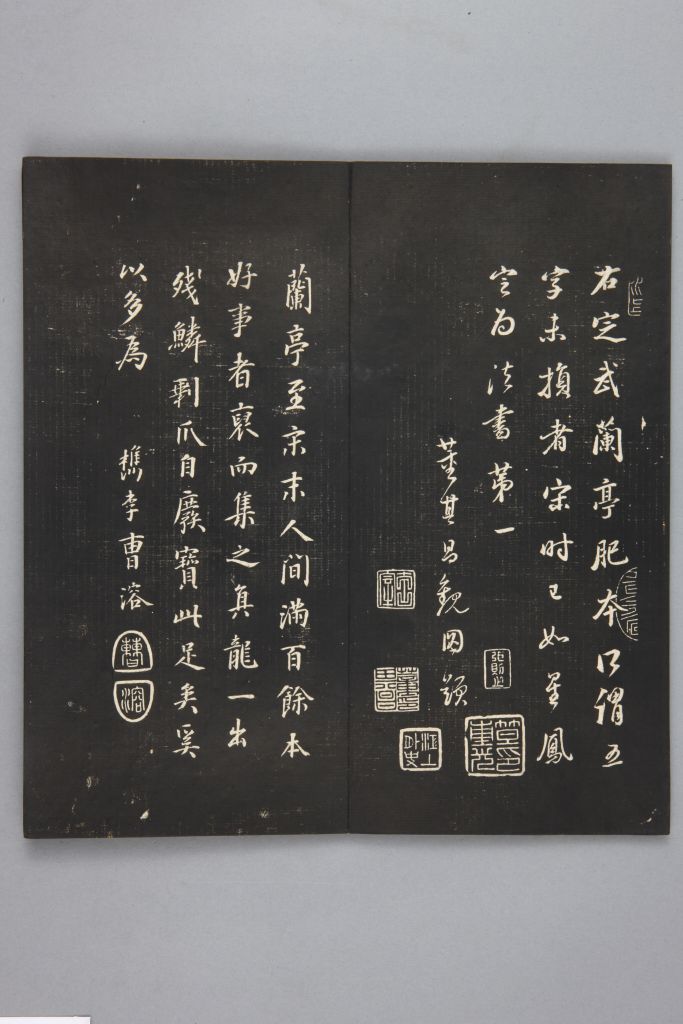 右定武蘭亭肥本所謂五
字未損者宋時已如星鳳
定為法書第一
董其昌觀因題
蘭亭至宋末人間滿百餘本
好事者裒而集之真龍一出
殘鱗剩爪自廢寶此足矣奚
以多為 檇李曹溶
曹
溶